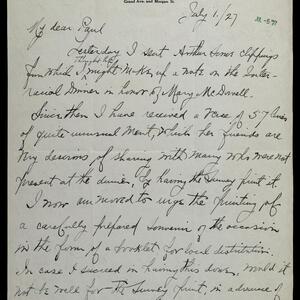 Grand Ave. and Morgan St.
July 1/27
My dear Paul
Yesterday I sent Arthur some clippings
from which I thought he might make up a note on the Inter-
racial Dinner in honor of Mary McDowell.
Since then I have received a verse of 57 lines
of quite unusual merit, which her friends are
very desirous of sharing with many who were not
present at the dinner, by having the Survey print it.
I now am moved to urge the printing of
a carefully prepared souvenir of the occasion
in the form of a booklet for local distribution.
In case I succeed in having this done, would it
not be well for the Survey print, in advance of